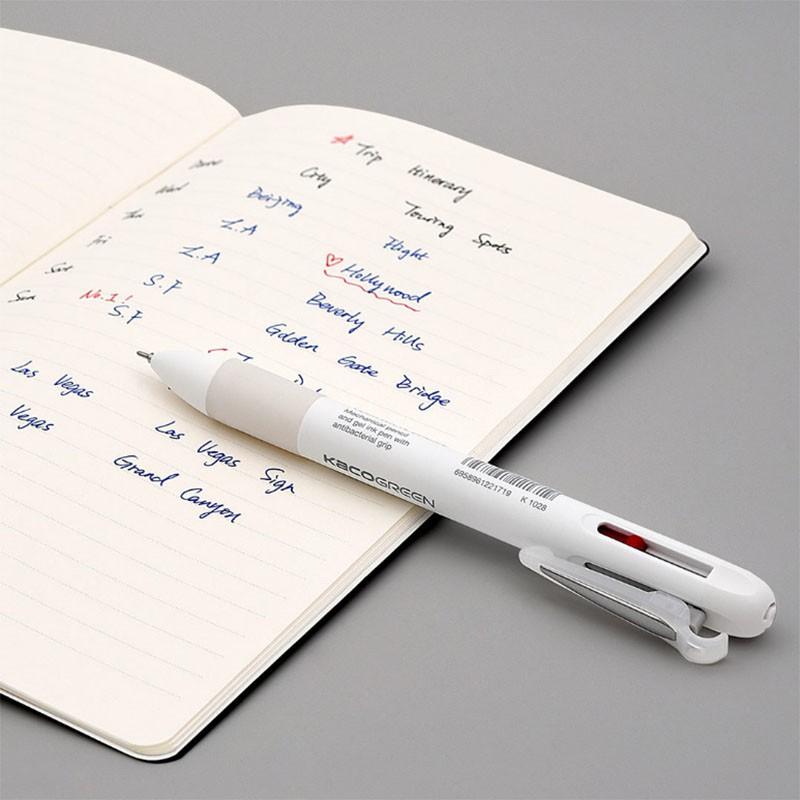 Trip Itinerary
City Touring Spots
Beijing Flight
Wed L.A Hollywood
Thu L.A Beverly Hills
Fri S.F Golden Gate Bridge
Sat No.1! S.F
Sun
Las Vegas Las Vegas Sign
Vegas Grand Canyon
Mechanical pencil
and gel ink pen with
antibacterial grip
KACOGREEN
6958961221719 K 1028